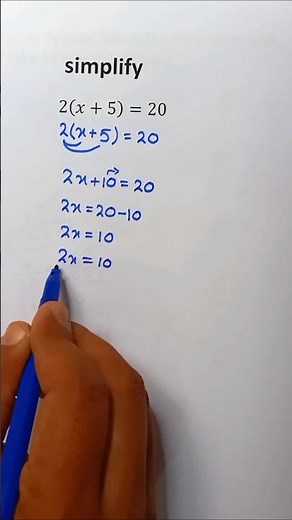 simplify
2(x + 5) = 20
2(x+5) = 20
2x+10 = 20
2x = 20-10
2x = 10
2x = 10